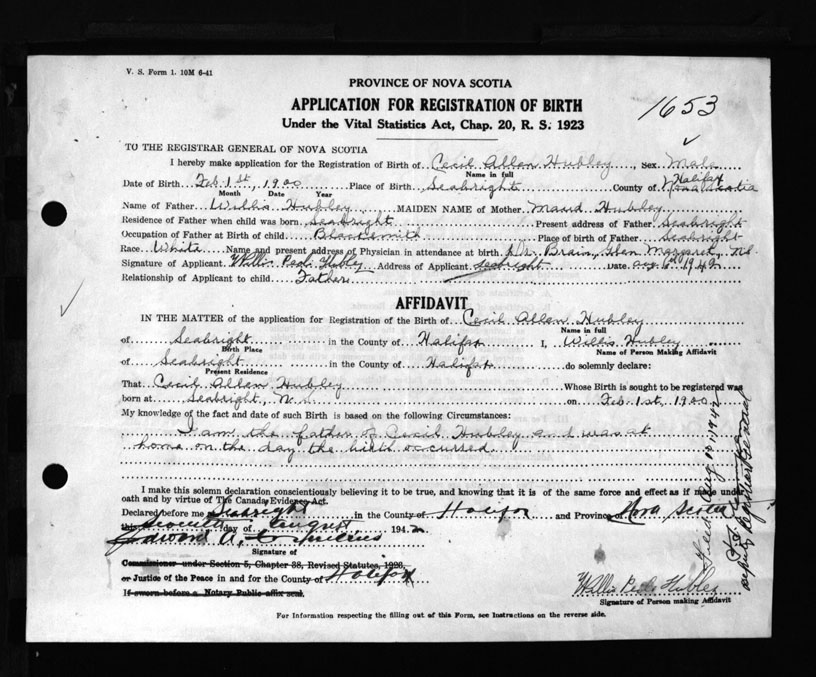 V. S. Form 1. 10M 6-41
PROVINCE OF NOVA SCOTIA
APPLICATION FOR REGISTRATION OF BIRTH
1653
Under the Vital Statistics Act, Chap. 20, R. S. 1923
TO THE REGISTRAR GENERAL OF NOVA SCOTIA
I hereby make application for the Registration of Birth of Cecil Allen Hubley, Sex Male
Name in full
Halifax
Date of Birth Feb 1st, 1900 Place of Birth Seabright County of Nova Scotia
Month Date Year
Name of Father Willis Hubley MAIDEN NAME of Mother Maud Hubley
Residence of Father when child was born Seabright Present address of Father Seabright
Occupation of Father at Birth of child Blacksmith Place of birth of Father Seabright
Race White Name and present address of Physician in attendance at birth Brain, Glen Margaret, N.S.
Signature of Applicant Willis Hubley Address of Applicant Seabright Date Aug 6th 1942
Relationship of Applicant to child Father
AFFIDAVIT
IN THE MATTER of the application for Registration of the Birth of Cecil Allen Hubley
Name in full
of Seabright in the County of Halifax I, Willis Hubley
Birth Place Name of Person Making Affidavit
of Seabright in the County of Halifax do solemnly declare:
Present Residence
That Cecil Allen Hubley Whose Birth is sought to be registered was
born at Seabright, N.S. on Feb 1st, 1900
My knowledge of the fact and date of such Birth is based on the following Circumstances:
I am the father of Cecil Hubley and was at
home on the day the birth occurred
I make this solemn declaration conscientiously believing it to be true, and knowing that it is of the same force and effect as if made under
oath and by virtue of The Canada Evidence Act.
Declared before me Seabright in the County of Halifax and Province of Nova Scotia
this day of August 1942
Edward A.
Signature of
Commissioner under Section 5, Chapter 38, Revised Statutes, 1926,
or Justice of the Peace in and for the County of Halifax
If sworn before a Notary Public affix seal.
Willis Hubley
Signature of Person making Affidavit
For Information respecting the filling out of this Form, see Instructions on the reverse side.
Filed Aug 11 1942
Deputy Registrar General